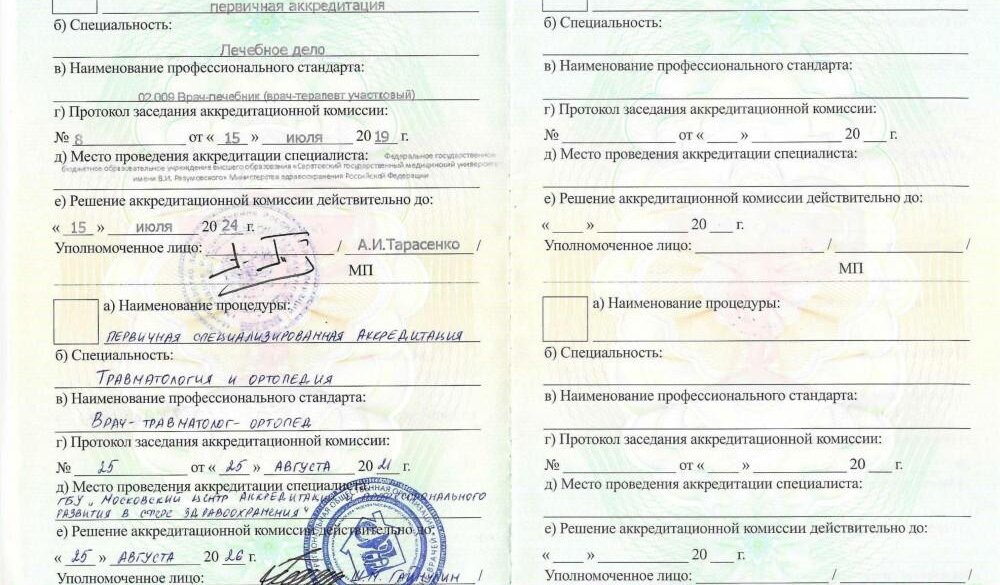 первичная аккредитация
б) Специальность:
Лечебное дело
в) Наименование профессионального стандарта:
02.009 Врач-лечебник (врач-терапевт участковый)
г) Протокол заседания аккредитационной комиссии:
№ 8 от « 15 » июля 20 19 г.
д) Место проведения аккредитации специалиста: Федеральное государственное
бюджетное образовательное учреждение высшего образования «Саратовский государственный медицинский университет
имени В.И. Разумовского» Министерства здравоохранения Российской Федерации
е) Решение аккредитационной комиссии действительно до:
« 15 » июля 20 24 г.
Уполномоченное лицо: / А.И.Тарасенко /
МП
а) Наименование процедуры:
первичная специализированная аккредитация
б) Специальность:
Травматология и ортопедия
в) Наименование профессионального стандарта:
Врач-травматолог-ортопед
г) Протокол заседания аккредитационной комиссии:
№ 25 от « 25 » августа 20 21 г.
д) Место проведения аккредитации специалиста:
ГБУ "Московский центр аккредитации и профессионального
развития в сфере здравоохранения"
е) Решение аккредитационной комиссии действительно до:
« 25 » августа 20 26 г.
Уполномоченное лицо: / Гайнулин /
б) Специальность:
в) Наименование профессионального стандарта:
г) Протокол заседания аккредитационной комиссии:
№ от « » 20 г.
д) Место проведения аккредитации специалиста:
е) Решение аккредитационной комиссии действительно до:
« » 20 г.
Уполномоченное лицо: / /
МП
а) Наименование процедуры:
б) Специальность:
в) Наименование профессионального стандарта:
г) Протокол заседания аккредитационной комиссии:
№ от « » 20 г.
д) Место проведения аккредитации специалиста:
е) Решение аккредитационной комиссии действительно до:
« » 20 г.
Уполномоченное лицо: / /